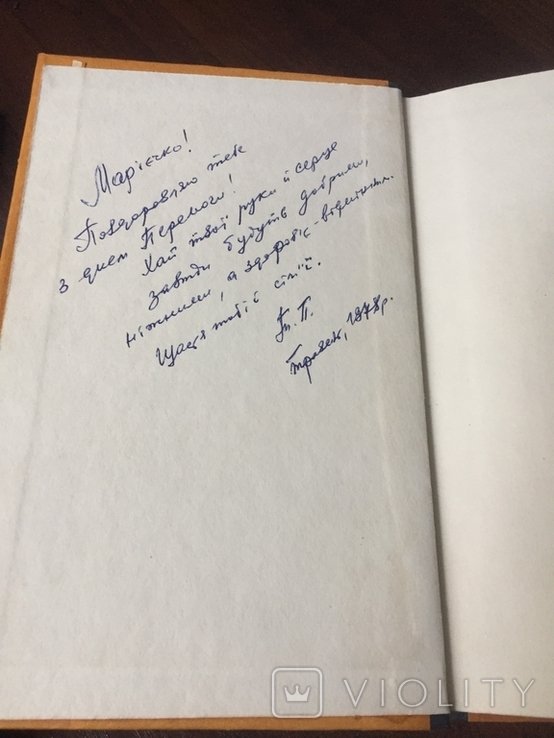 Марієчко!
Поздоровляю тебе
з днем Перемоги!
Хай твої руки й серце
завжди будуть добрими,
ніжними, а здоров'є - відмінним.
Щастя тобі й сім'ї.
Т. П.
Травень, 1978р.
VIOLITY